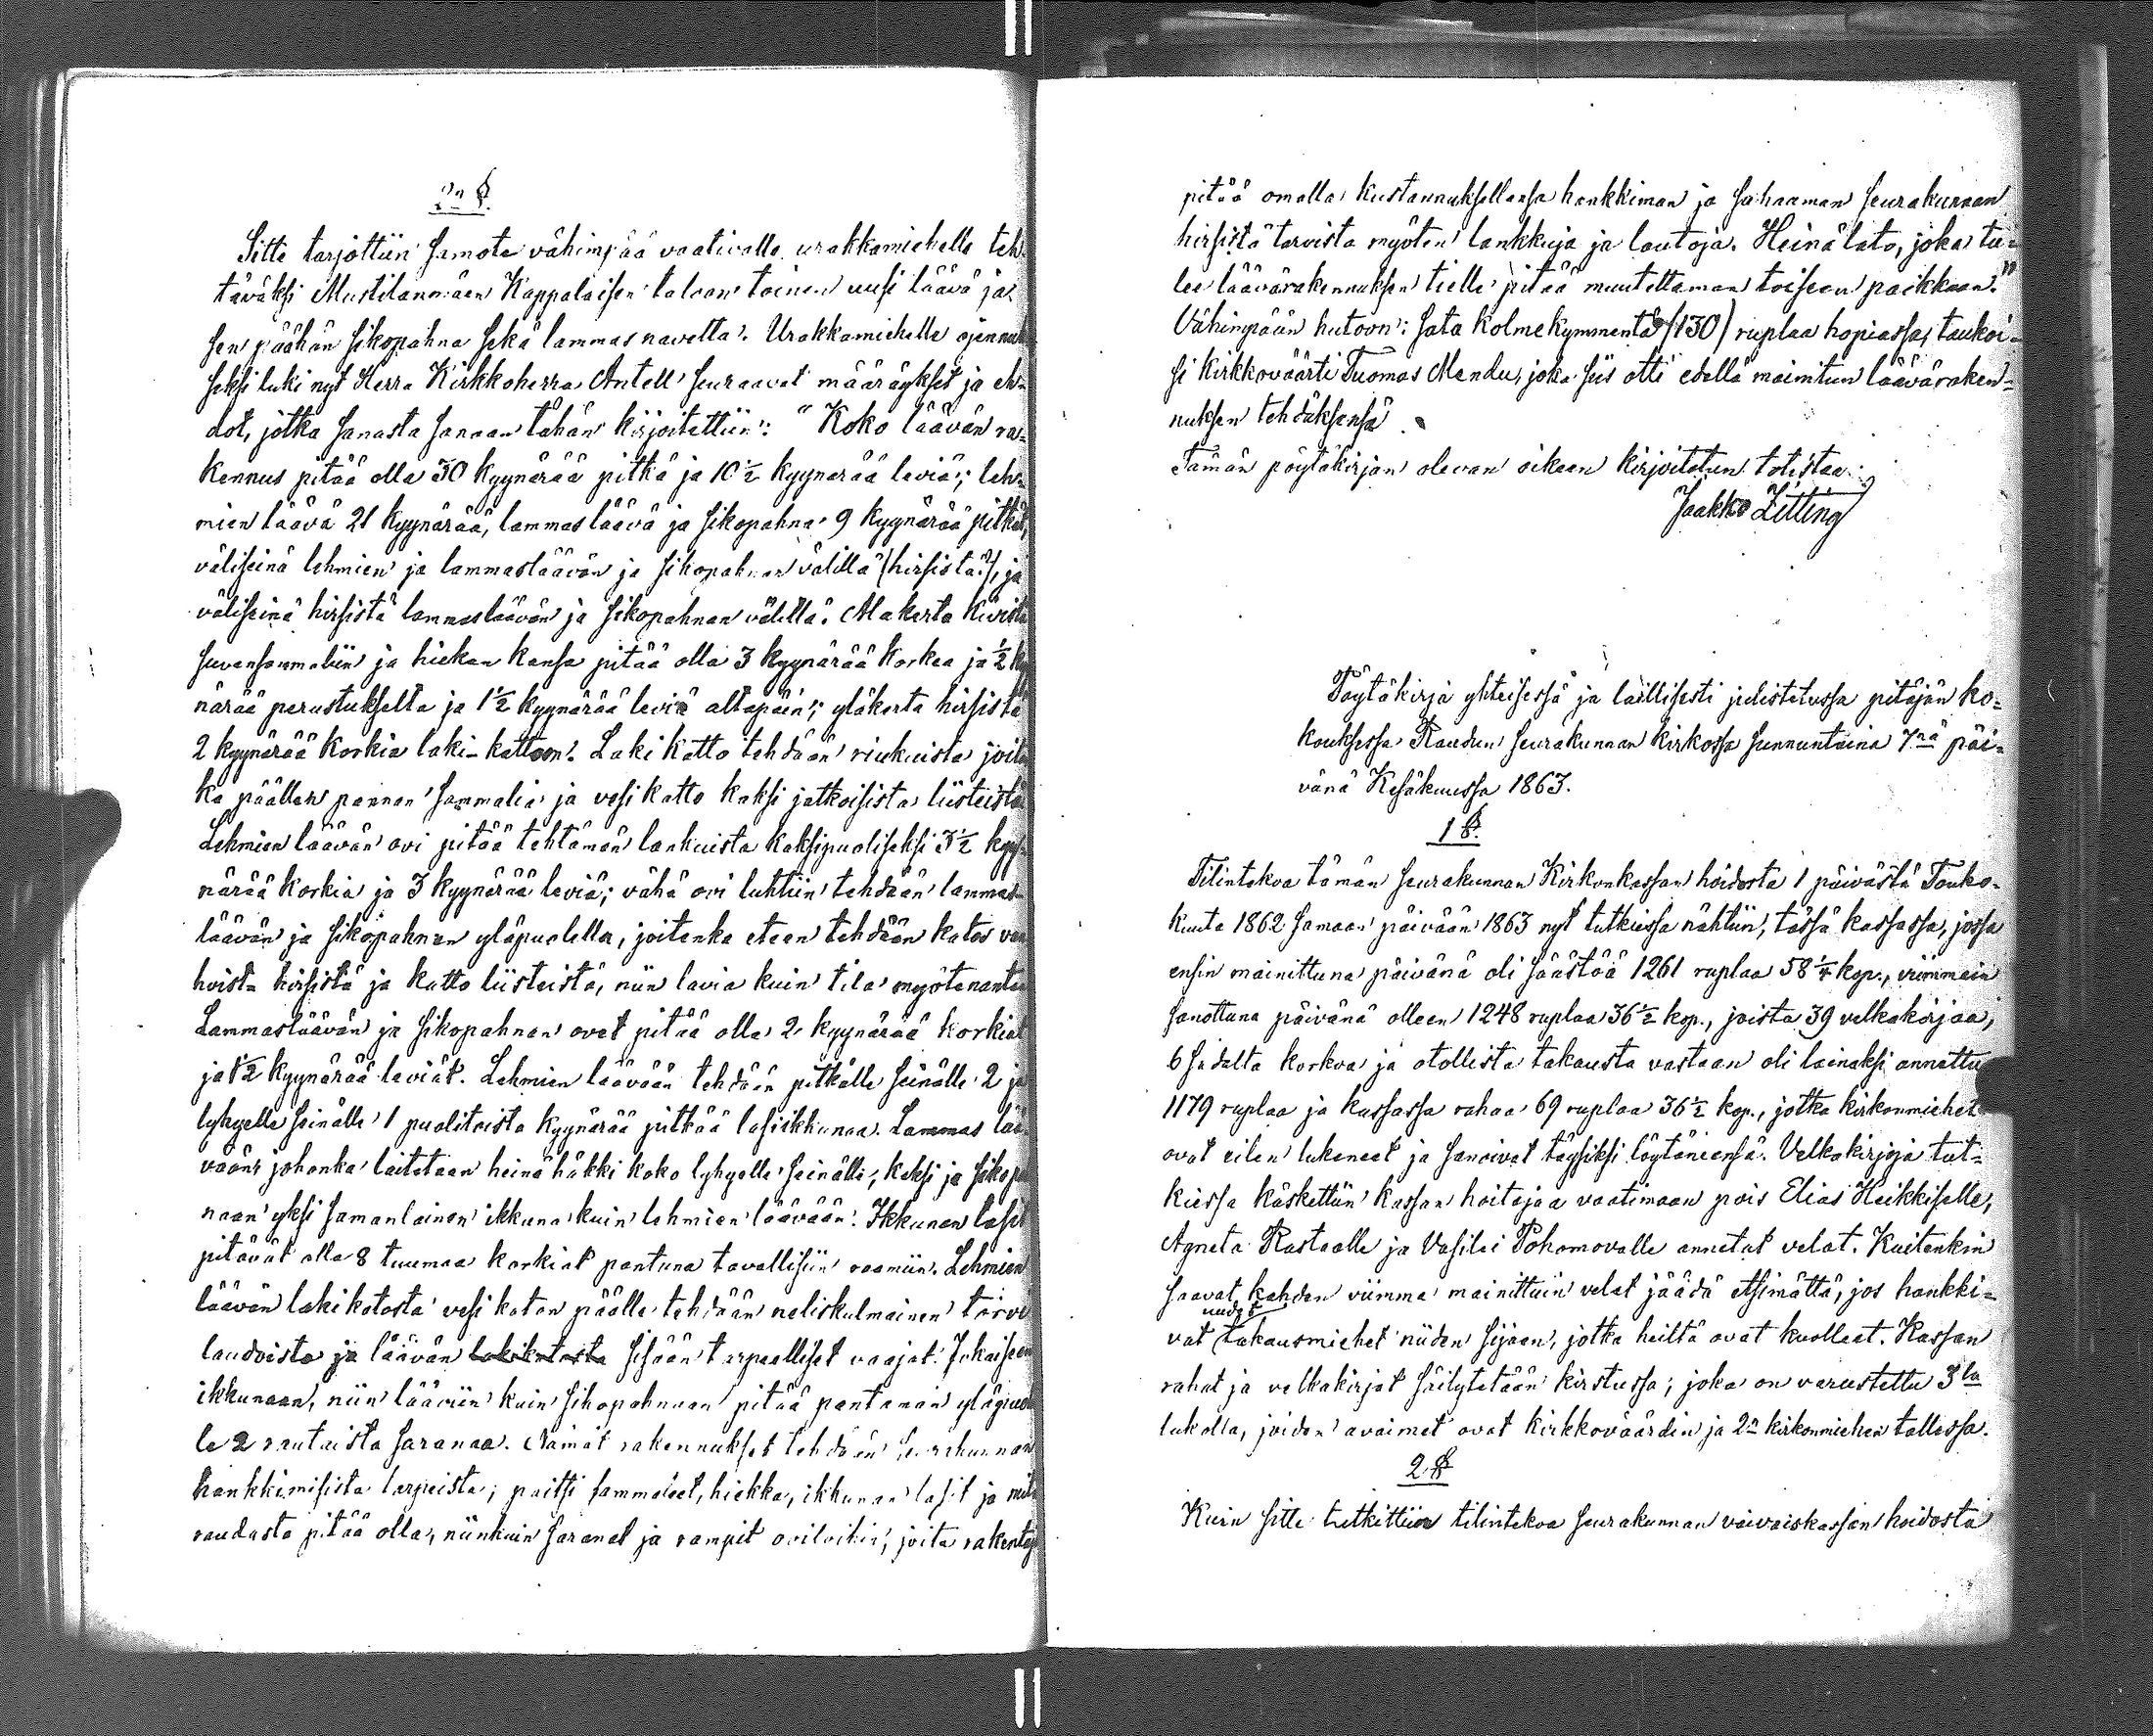 2n §.
Sitte tarjottiin samote vähimpää vaativalle urakkamiehelle teh-
täväksi Mustilanmäen Kappalaisen taloon toinen uusi läävä ja
sen päähän sikopahna sekä lammasnavetta. Urakkamiehelle ojennuk-
seksi luki nyt Herra Kirkkoherra Antell seuraavat määräykset ja eh-
dot, jotka sanasta sanaan tähän kirjoitettiin: "Koko läävän ra=
kennus pitää olla 30 kyynärää pitkä ja 10½ kyynärää leviä; leh=
mien läävä 21 kyynärää, lammasläävä ja sikopahna 9 kyynärää pitkät,
väliseinä lehmien ja lammasläävän ja sikopahnan välillä (hirsistä), ja
väliseinä hirsistä lammasläävän ja sikopahnan välillä. Alakerta kivistä
suvensammaliin ja hiekan kansa pitää olla 3 kyynärää korkea ja ½ ky
närää perustukselta ja 1½ kyynärää leviä altapäin; yläkerta hirsistä
2 kyynärää korkia laki-kattoon. Laki katto tehdään riukuista joiten
ka päällen pannan sammalia ja vesikatto kaksi jatkoisista liisteistä
Lehmien läävän ovi pitää tehtämän lankuista kaksipuoliseksi 3½ kyy-
närää korkia ja 3 kyynärää leviä; vähä ovi luhtiin tehdään lammas-
läävän ja sikopahnan yläpuolella, joitenka eteen tehdään katos van
hoista hirsistä ja katto liisteistä, niin lavia kuin tila myötenantaa
Lammasläävän ja sikopahnan ovet pitää olla 2 kyynärää korkiat
ja 1½ kyynärää leviät. Lehmien läävään tehdään pitkälle seinälle 2 ja
lyhyelle seinälle 1 puolitoista kyynärää pitkää lasiikkunaa. Lammas lää
vään, johonka laitetaan heinähäkki koko lyhyelle seinälle, kaksi ja sikopah
naan yksi samanlainen ikkuna kuin lehmien läävään. Ikkunan lasit
pitävät olla 8 tuumaa korkiat pantuna tavallisiin raamiin. Lehmien
läävän lakikatosta vesi katon päälle tehdään neliskulmainen torvi
laudoista ja läävän lakikatosta sisään tarpeelliset vaajat. Jokaiseen
ikkunaan, niin lääviin kuin sikopahnaan pitää pantaman yläpuol
le 2 rautaista saranaa. Nämät rakennukset tehdään seurakunnan
hankkimisista tarpeista; paitsi sammaleet, hiekka, ikkunan lasit ja mitä
raudasta pitää olla, niinkuin saranat ja rampit oviloihin, joita rakentaja
pitää omalla kustannuksellansa hankkiman ja sahaaman seurakunnan
hirsistä tarvista myöten lankkuja ja lautoja. Heinälato, joka tu=
lee läävärakennuksen tielle pitää muutettaman toiseen paikkaan."
Vähimpään hutoon: sata kolmekymmentä (130) ruplaa hopiassa, taukoi-
si kirkkoväärti Tuomas Mendu, joka siis otti edellä mainitun läävä raken=
nuksen tehdäksensä.
Tämän pöytäkirjan olevan oikeen kirjoitetun totistaa:
Jaakko Zitting
Pöytäkirja yhteisessä ja laillisesti julistetussa pitäjän ko=
kouksessa Raudun seurakunnan kirkossa sunnuntaina 7nä päi=
vänä Kesäkuussa 1863.
1 §.
Tilintekoa tämän seurakunnan Kirkonkassan hoidosta 1 päivästä Touko-
kuuta 1862 samaan päivään 1863 nyt tutkiissa nähtiin, tässä kassassa, jossa
ensin mainittuna päivänä oli säästöä 1261 ruplaa 58¼ kop., viimmein
sanottuna päivänä olleen 1248 ruplaa 36½ kop., joista 39 velkakirjaa,
6 sadalta korkoa ja otollista takausta vastaan oli lainaksi annettu
1179 ruplaa ja kassassa rahaa 69 ruplaa 36½ kop., jotka kirkonmiehet
ovat eilen lukeneet ja sanoivat täysiksi löytäneensä. Velkakirjoja tut=
kiessa käskettiin kassan hoitajaa vaatimaan pois Elias Heikkiselle,
Agneta Rastaalle ja Vasilei Pohomovalle annetut velat. Kuitenkin
saavat kahden viimme mainittuin velat jäädä etsimättä, jos hankki=
uudet
vat takausmiehet niiden sijaan, jotka heiltä ovat kuolleet. Kassan
rahat ja velkakirjat säilytetään kirstussa; joka on varustettu 3lla
lukolla, joiden avaimet ovat kirkkoväärdin ja 2n kirkonmiehen tallessa.
2 §
Kuin sitte tutkittiin tilintekoa seurakunnan vaivaiskassan hoidosta